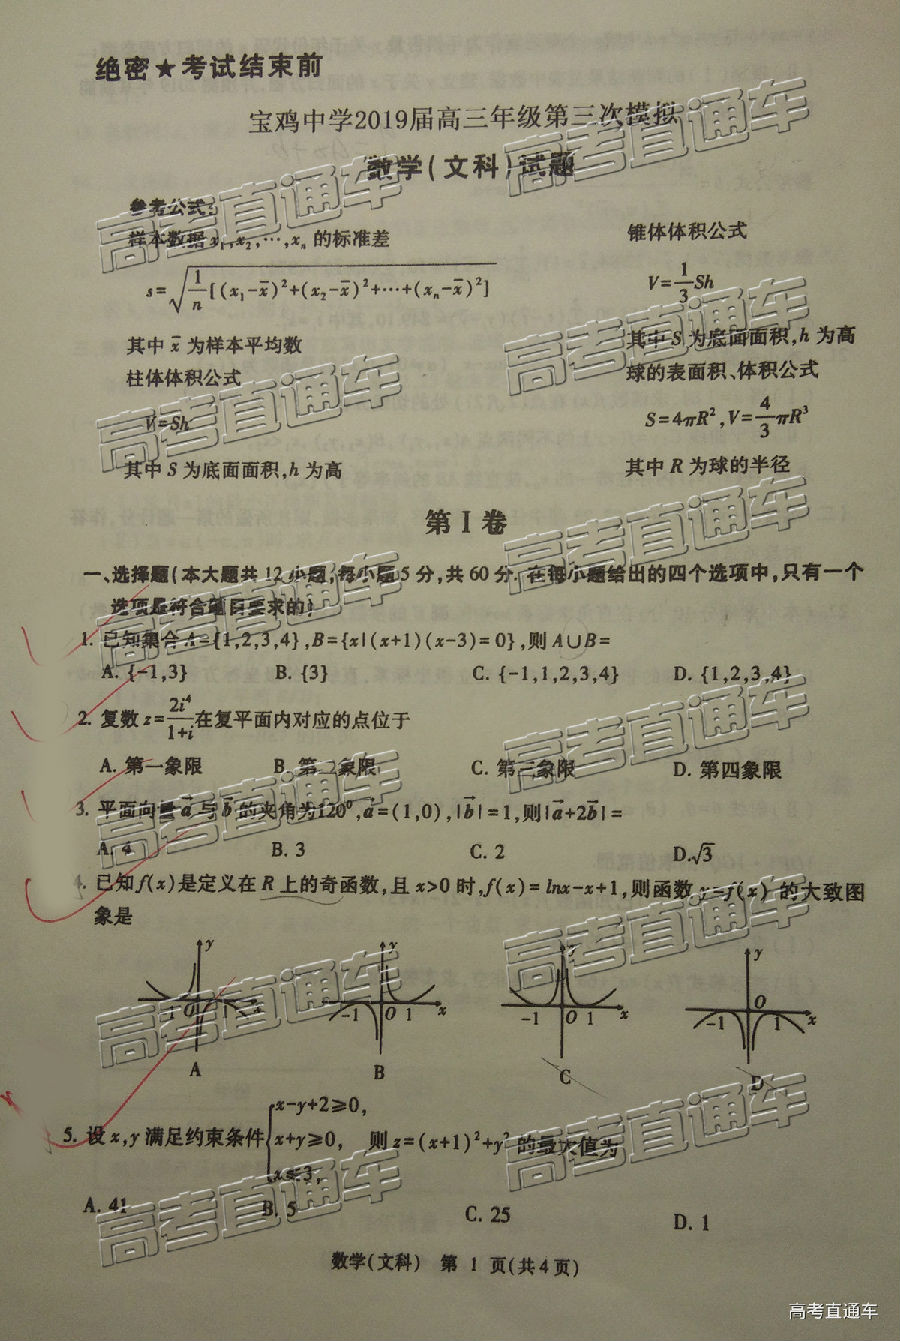 绝密★考试结束前
宝鸡中学2019届高三年级第三次模拟
数学(文科)试题
参考公式:
样本数据 x₁,x₂,…,xₙ 的标准差
锥体体积公式
s=√(1/n[(x₁-x̄)²+(x₂-x̄)²+…+(xₙ-x̄)²])
V=1/3Sh
其中 x̄ 为样本平均数
其中 S 为底面面积,h 为高
柱体体积公式
球的表面积、体积公式
V=Sh
S=4πR²,V=4/3πR³
其中 S 为底面面积,h 为高
其中 R 为球的半径
第 I 卷
一、选择题(本大题共 12 小题,每小题 5 分,共 60 分. 在每小题给出的四个选项中,只有一个
选项是符合题目要求的)
1. 已知集合 A={1,2,3,4},B={x|(x+1)(x-3)=0},则 A∪B=
A. {-1,3} B. {3} C. {-1,1,2,3,4} D. {1,2,3,4}
2. 复数 z=2i⁴/(1+i) 在复平面内对应的点位于
A. 第一象限 B. 第二象限 C. 第三象限 D. 第四象限
3. 平面向量 a⃗ 与 b⃗ 的夹角为120⁰,a⃗=(1,0),|b⃗|=1,则|a⃗+2b⃗|=
A. 4 B. 3 C. 2 D. √3
4. 已知 f(x) 是定义在 R 上的奇函数,且 x>0 时,f(x)=lnx-x+1,则函数 y=f(x) 的大致图
象是
y y y y
-1 O 1 x -1 O 1 x -1 O 1 x -1 O 1 x
A B C D
5. 设 x,y 满足约束条件{x-y+2≥0, x+y≥0, x≤3, 则 z=(x+1)²+y² 的最大值为
A. 41 B. 5 C. 25 D. 1
数学(文科) 第 1 页(共 4 页)
高考直通车